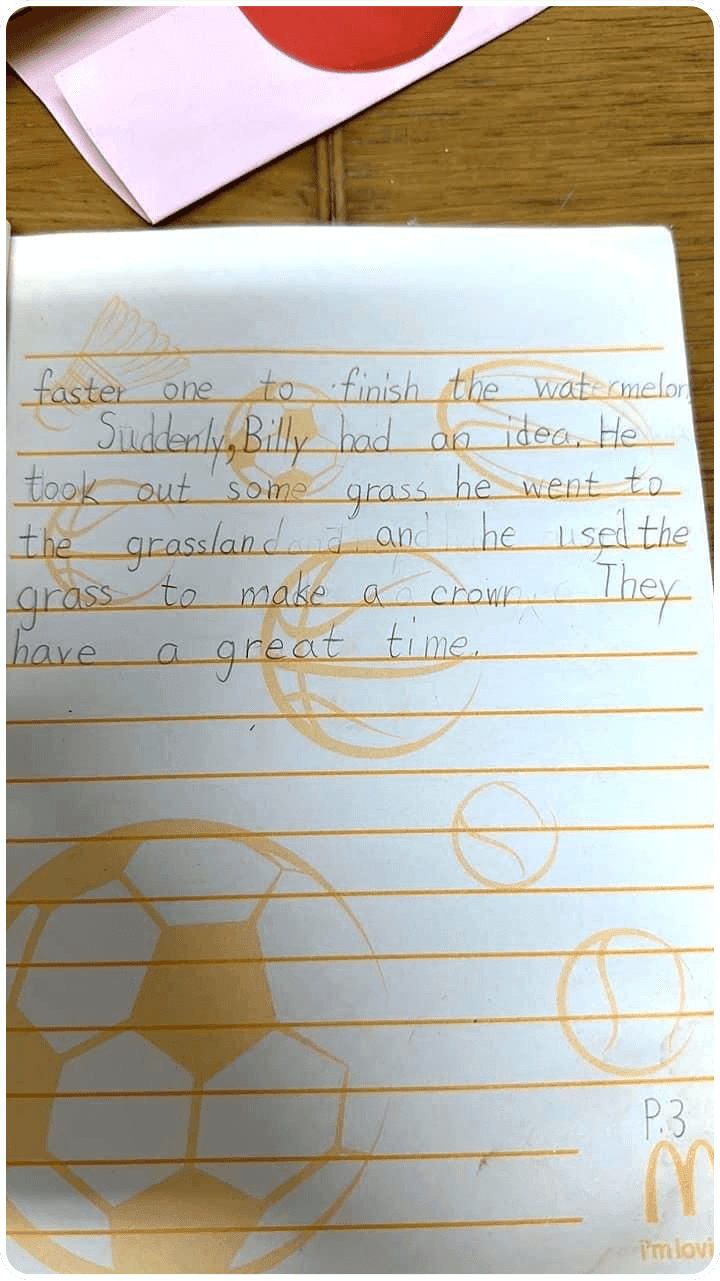 faster one to finish the watermelon
Suddenly, Billy had an idea. He
took out some grass he went to
the grassland and he used the
grass to make a crown. They
have a great time.
P.3
i'm lovi